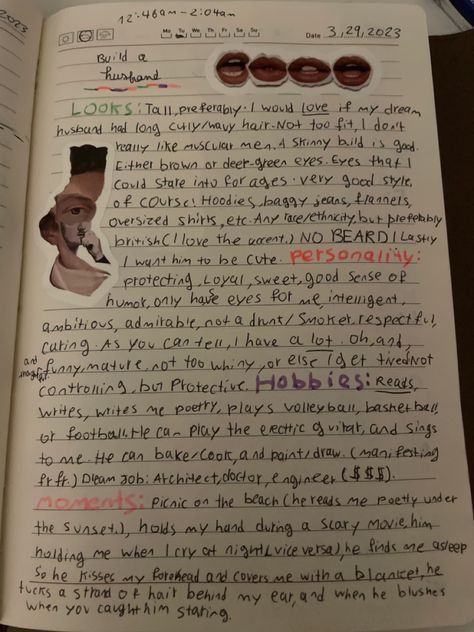 2023
12:46am - 2:04am
Mo Tu We Th Fr Sa Su
Date 3,29,2023
Build a
husband
LOOKS: Tall, preferably. I would love if my dream
husband had long curly/wavy hair. Not too fit, I don't
really like muscular men. A skinny build is good.
Either brown or deep-green eyes. Eyes that I
could stare into for ages. Very good style,
of course! Hoodies, baggy jeans, flannels,
oversized shirts, etc. Any race/ethnicity, but preferably
british (I love the accent.) NO BEARD! Lastly
I want him to be cute. Personality:
protecting, Loyal, sweet, good sense of
humor, only have eyes for me, intelligent,
ambitious, admirable, not a drunk/smoker, respectful,
caring. As you can tell, I have a lot. Oh, and,
and thoughtful.
funny, mature, not too whiny, or else I get tired. Not
controlling, but Protective. Hobbies: Reads,
writes, writes me poetry, plays volleyball, basketball,
or football. He can play the electric guitar, and sings
to me. He can bake/cook, and paint/draw. (manifesting
fr fr.) Dream Job: Architect, doctor, engineer ($$$).
moments: Picnic on the beach (he reads me poetry under
the sunset.), holds my hand during a scary movie, him
holding me when I cry at night (vice versa), he finds me asleep
So he kisses my forehead and covers me with a blanket, he
tucks a strand of hair behind my ear, and when he blushes
when you caught him staring.